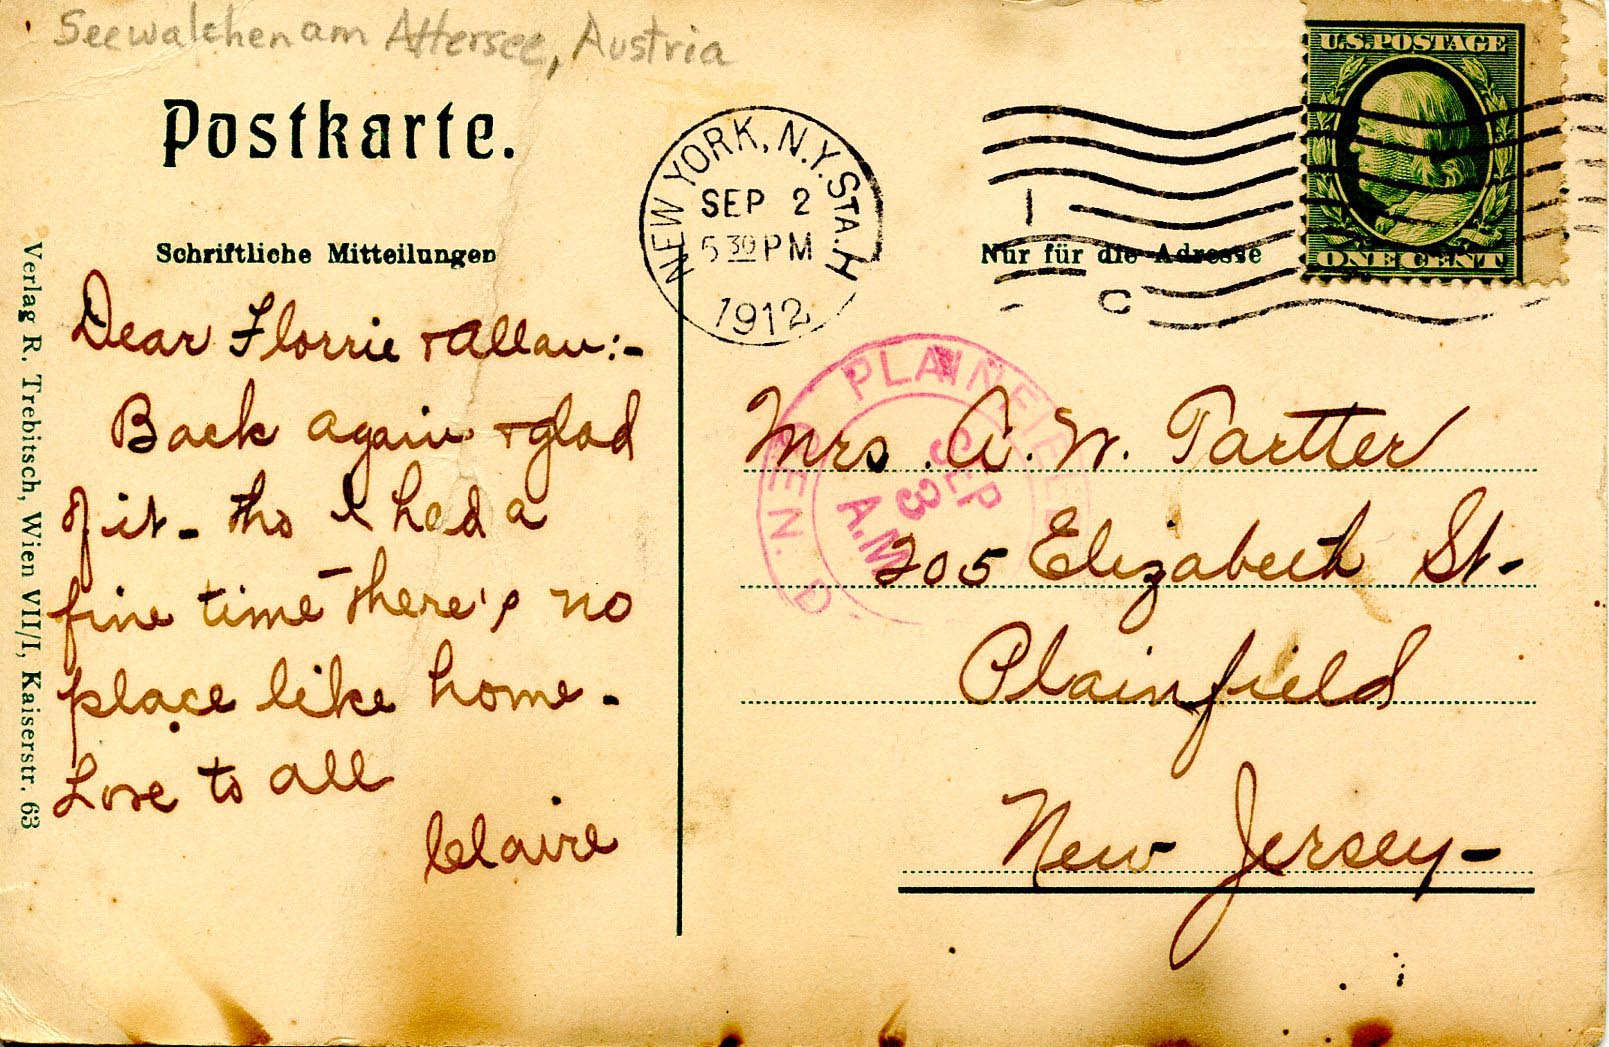 Seewalchen am Attersee, Austria
Postkarte.
U.S. POSTAGE
ONE CENT
NEW YORK, N.Y. STA. H
SEP 2
5 30 PM
1912
1
C
Schriftliche Mitteilungen
Nur für die Adresse
Verlag R. Trebitsch, Wien VII/I, Kaiserstr. 63
Dear Florrie + Allan:-
Back again + glad
of it - tho I had a
fine time - there's no
place like home -
Love to all
Claire
PLAINFIELD
SEP
3
A.M
GEN. D
Mrs. A. W. Partter
205 Elizabeth St-
Plainfield
New Jersey-